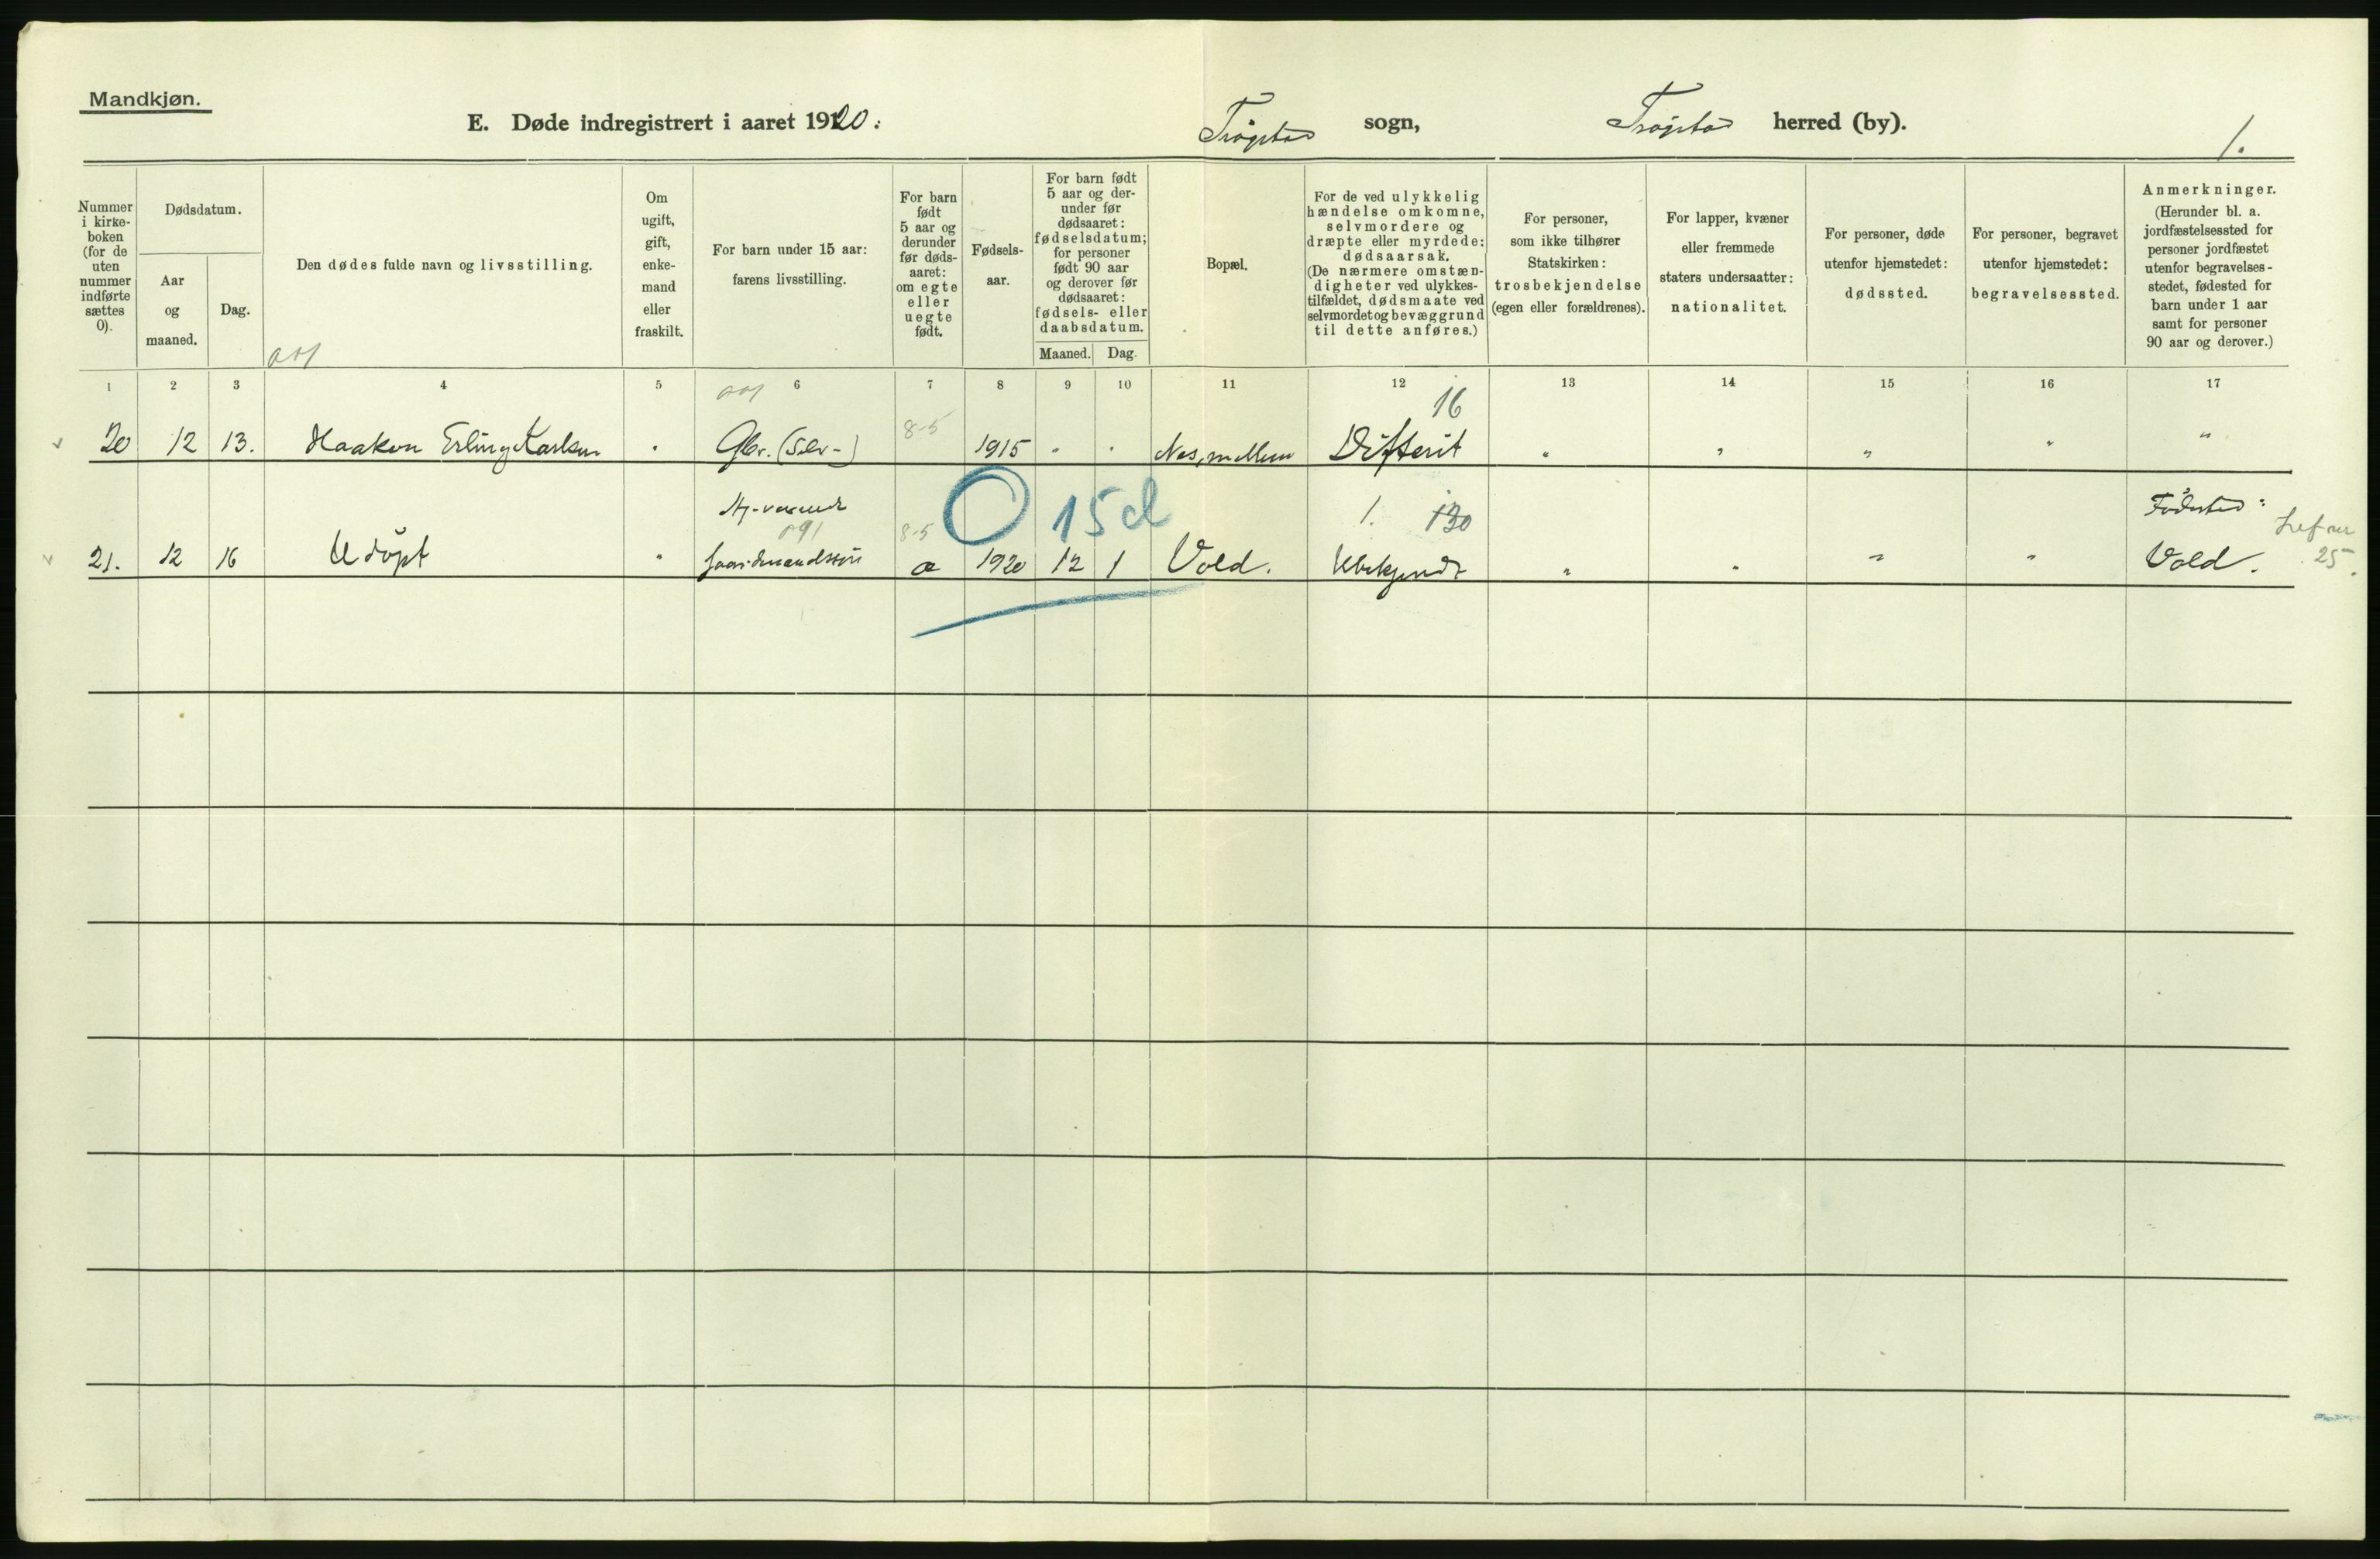 Mandkjøn.
E. Døde indregistrert i aaret 1920:
Trøgstad sogn,
Trøgstad herred (by).
1.
Nummer
i kirke-
boken
(for de
uten
nummer
indførte
sættes
0).
Dødsdatum.
Aar
og
maaned.
Dag.
Den dødes fulde navn og livsstilling.
Om
ugift,
gift,
enke-
mand
eller
fraskilt.
For barn under 15 aar:
farens livsstilling.
For barn
født
5 aar og
derunder
før døds-
aaret:
om egte
eller
uegte
født.
Fødsels-
aar.
For barn født
5 aar og der-
under før
dødsaaret:
fødselsdatum;
for personer
født 90 aar
og derover før
dødsaaret:
fødsels- eller
daabsdatum.
Maaned. Dag.
Bopæl.
For de ved ulykkelig
hændelse omkomne,
selvmordere og
dræpte eller myrdede:
dødsaarsak.
(De nærmere omstæn-
digheter ved ulykkes-
tilfældet, dødsmaate ved
selvmordet og bevæggrund
til dette anføres.)
For personer,
som ikke tilhører
Statskirken:
trosbekjendelse
(egen eller forældrenes).
For lapper, kvæner
eller fremmede
staters undersaatter:
nationalitet.
For personer, døde
utenfor hjemstedet:
dødssted.
For personer, begravet
utenfor hjemstedet:
begravelsessted.
Anmerkninger.
(Herunder bl. a.
jordfæstelsessted for
personer jordfæstet
utenfor begravelses-
stedet, fødested for
barn under 1 aar
samt for personer
90 aar og derover.)
1 2 3 4 5 6 7 8 9 10 11 12 13 14 15 16 17
16
8-5
20 12 13. Haakon Erling Karlsen " Gbr. (Selv-) 1915 " " Nes, mellem Difterit " " " " "
0 15 d
1. 130
Fødested:
8-5
091
21. 12 16 Udøpt " æ 1920 12 1 Vold. Ubekjendt " " " " Vold.
25.